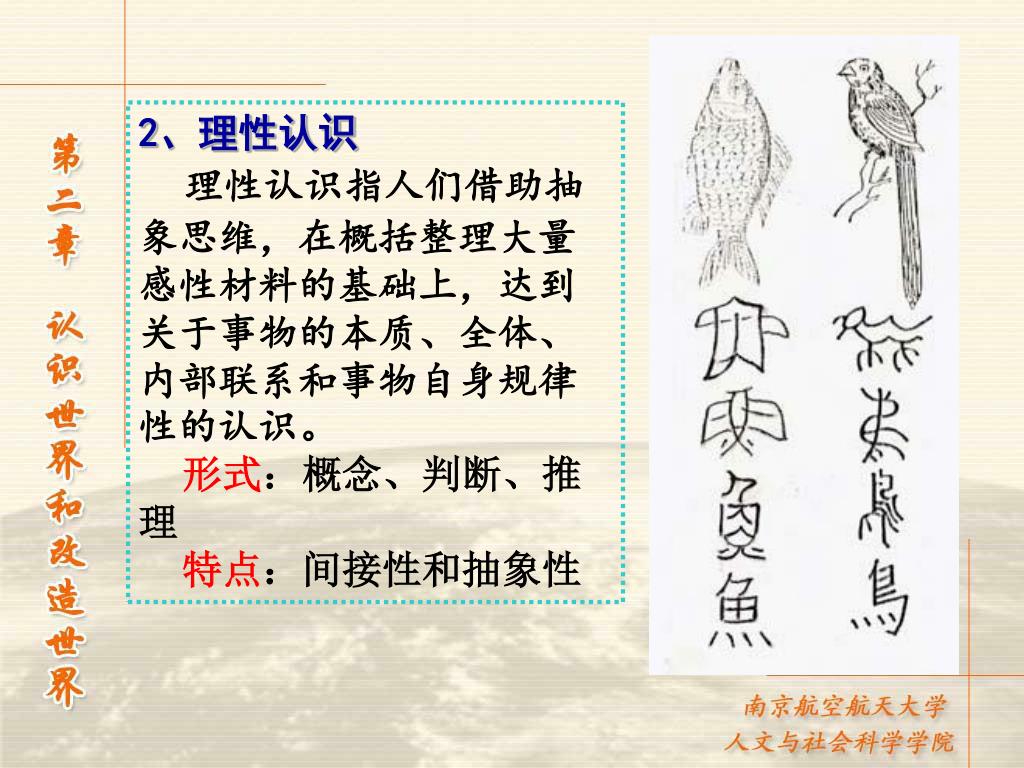 第二章 认识世界和改造世界
2、理性认识
理性认识指人们借助抽
象思维，在概括整理大量
感性材料的基础上，达到
关于事物的本质、全体、
内部联系和事物自身规律
性的认识。
形式：概念、判断、推
理
特点：间接性和抽象性
魚
鳥
南京航空航天大学
人文与社会科学学院